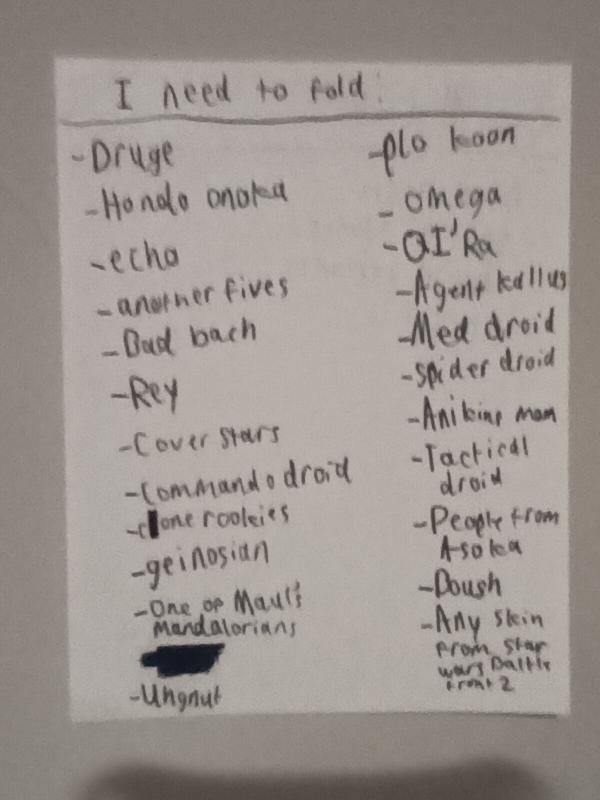 I need to fold:
-Druge
-Hondo onoka
-echo
-another fives
-Bad bach
-Rey
-Cover stars
-Commando droid
-clone rookies
-geinosian
-One of Maul's
Mandalorians
-Ungnut
-plo koon
-omega
-QI'Ra
-Agent kallus
-Med droid
-spider droid
-Anikins mom
-Tactical
droid
-People from
Asoka
-Doush
-Any skin
from star
wars Battle
front 2